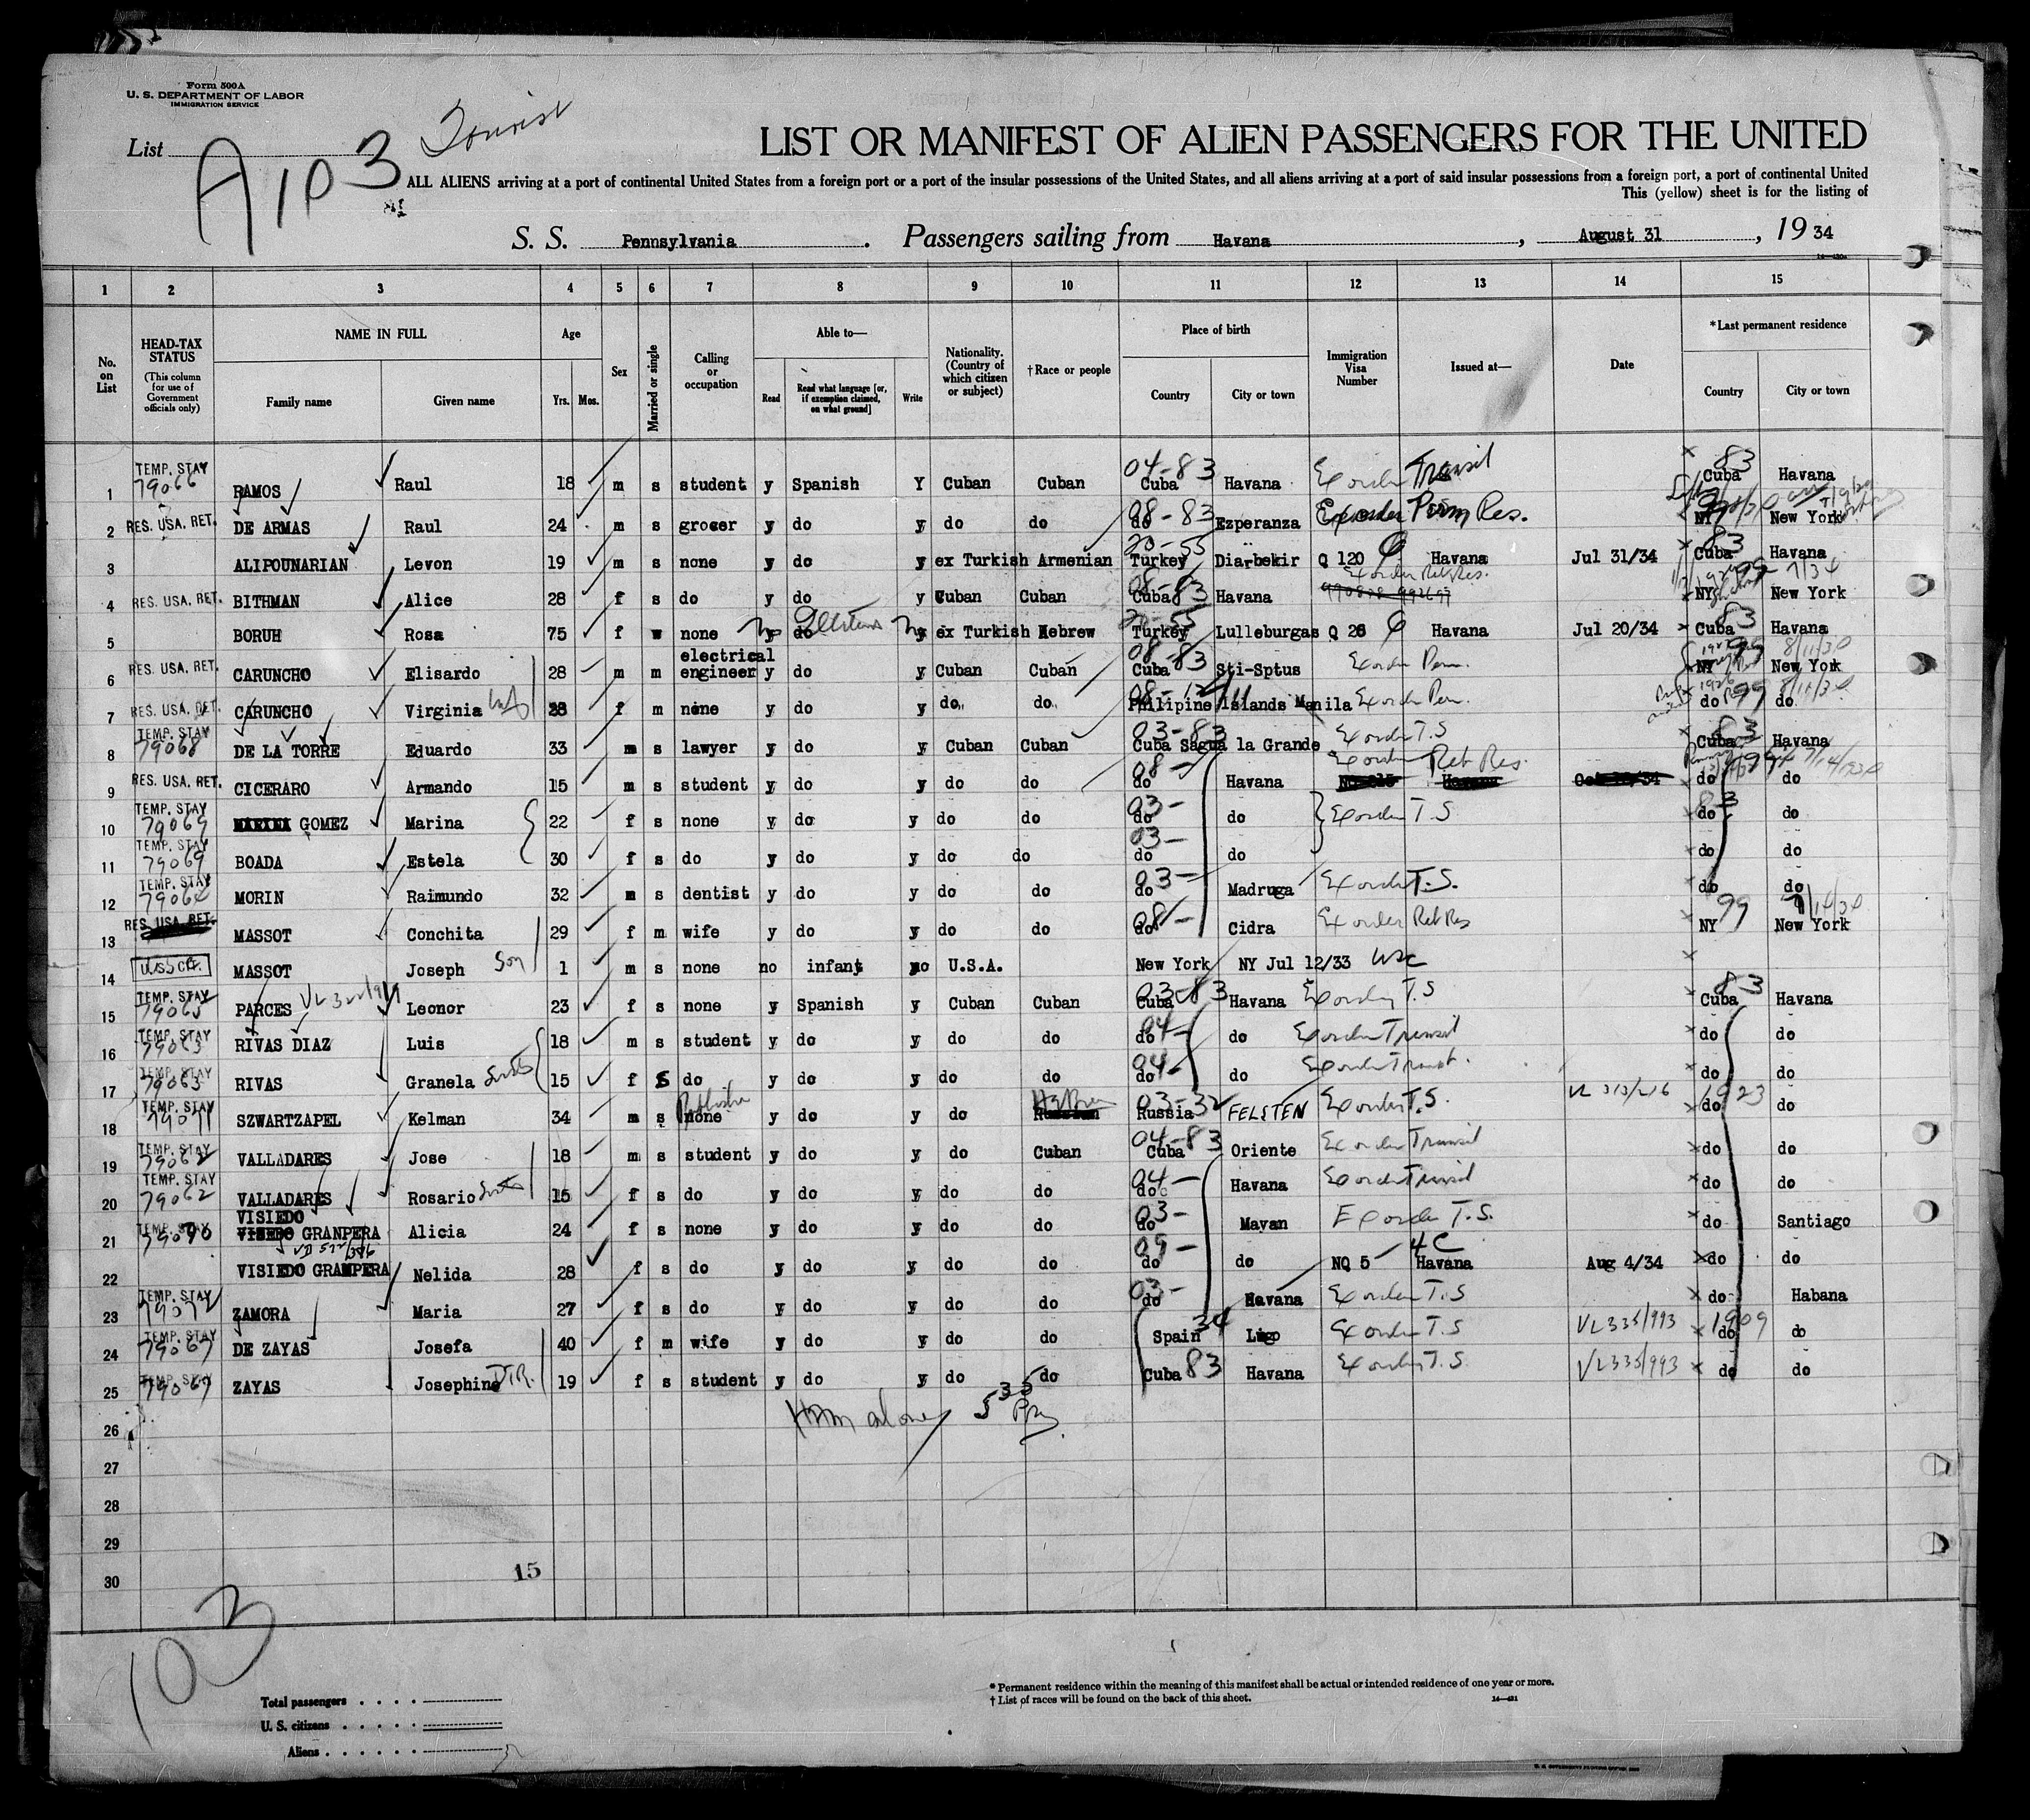 Form 500A
U. S. DEPARTMENT OF LABOR
IMMIGRATION SERVICE
List A 103 Tourist
LIST OR MANIFEST OF ALIEN PASSENGERS FOR THE UNITED
ALL ALIENS arriving at a port of continental United States from a foreign port or a port of the insular possessions of the United States, and all aliens arriving at a port of said insular possessions from a foreign port, a port of continental United
This (yellow) sheet is for the listing of
S. S. Pennsylvania. Passengers sailing from Havana, August 31, 19 34
1 2 3 4 5 6 7 8 9 10 11 12 13 14 15
No. on List
HEAD-TAX STATUS (This column for use of Government officials only)
NAME IN FULL Family name Given name
Age Yrs. Mos.
Sex
Married or single
Calling or occupation
Able to— Read Read what language [or, if exemption claimed, on what ground] Write
Nationality. (Country of which citizen or subject)
†Race or people
Place of birth Country City or town
Immigration Visa Number
Issued at—
Date
*Last permanent residence Country City or town
1 TEMP. STAY 79066 RAMOS Raul 18 m s student y Spanish Y Cuban Cuban 04-83 Cuba Havana Ex order Transit 83 Cuba Havana
2 RES. USA. RET. DE ARMAS Raul 24 m s grocer y do y do do 08-83 do Ezperanza Ex order Perm Res. NY New York
3 ALIPOUNARIAN Levon 19 m s none y do y ex Turkish Armenian 20-55 Turkey Diarbekir Q 120 Havana Jul 31/34 83 Cuba Havana
4 RES. USA. RET. BITHMAN Alice 28 f s do y do y Cuban Cuban 08-83 Cuba Havana Ex order Ret Res. NY New York
5 BORUH Rosa 75 f w none no y do no y ex Turkish Hebrew 20-55 Turkey Lulleburgas Q 26 Havana Jul 20/34 83 Cuba Havana
6 RES. USA. RET. CARUNCHO Elisardo 28 m m electrical engineer y do y Cuban Cuban 08-83 Cuba Sti-Sptus Ex order Perm. NY New York 8/11/30
7 RES. USA. RET. CARUNCHO Virginia wife 28 f m none y do y do do Philipine Islands Manila Ex order Perm. 99 do do
8 TEMP. STAY 79068 DE LA TORRE Eduardo 33 m s lawyer y do y Cuban Cuban 03-83 Cuba Sagua la Grande Ex order T.S 83 Cuba Havana
9 RES. USA. RET. CICERARO Armando 15 m s student y do y do do 08- do Havana Ex order Ret Res. do do
10 TEMP. STAY 79069 GOMEZ Marina 22 f s none y do y do do 03- do do Ex order T.S 83 do do
11 TEMP. STAY 79069 BOADA Estela 30 f s do y do y do do 03- do do do do
12 TEMP. STAY 79064 MORIN Raimundo 32 m s dentist y do y do do 03- do Madruga Ex order T.S. do do
13 RES. USA. RET. MASSOT Conchita 29 f m wife y do y do do 08- do Cidra Ex order Ret Res 99 NY New York
14 MASSOT Joseph Son 1 m s none no infant no U.S.A. New York NY Jul 12/33
15 TEMP. STAY 79065 PARCES Leonor 23 f s none y Spanish y Cuban Cuban 03-83 Cuba Havana Ex order T.S 83 Cuba Havana
16 TEMP. STAY 79063 RIVAS DIAZ Luis 18 m s student y do y do do 04- do do Ex order Transit do do
17 TEMP. STAY 79063 RIVAS Granela Sister 15 f s do y do y do do 04- do do Ex order Transit. do do
18 TEMP. STAY 79071 SZWARTZAPEL Kelman 34 m s none y do y do Hebrew 03-32 Russia FELSTEN Ex order T.S. VL 313/216 1923 do do
19 TEMP. STAY 79062 VALLADARES Jose 18 m s student y do y do Cuban 04-83 Cuba Oriente Ex order Transit do do
20 TEMP. STAY 79062 VALLADARES Rosario Sister 15 f s do y do y do do 04- do Havana Ex order Transit do do
21 TEMP. STAY 79070 VISIEDO GRANPERA Alicia 24 f s none y do y do do 03- do Mayan Ex order T.S. do Santiago
22 VISIEDO GRAMPERA Nelida 28 f s do y do y do do 09- do do NQ 5 4C Havana Aug 4/34 do do
23 TEMP. STAY 79072 ZAMORA Maria 27 f s do y do y do do 03- do Havana Ex order T.S do Habana
24 TEMP. STAY 79067 DE ZAYAS Josefa 40 f m wife y do y do do Spain 34 Lugo Ex order T.S VL335/993 1909 do do
25 TEMP. STAY 79067 ZAYAS Josephine DTR. 19 f s student y do y do do Cuba 83 Havana Ex order T.S. VL335/993 do do
26
27
28
29
30
15
103
Total passengers
U. S. citizens
Aliens
* Permanent residence within the meaning of this manifest shall be actual or intended residence of one year or more.
† List of races will be found on the back of this sheet.